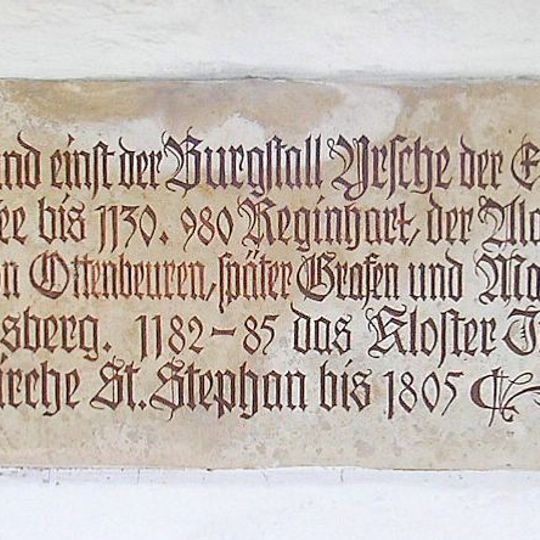 und einst der Burgstall Yrsche der E
ee bis 1130. 980 Reginhart, der Ala
n Ottenbeuren, später Grafen und Ma
sberg. 1182-85 das Kloster Ir
irche St. Stephan bis 1805